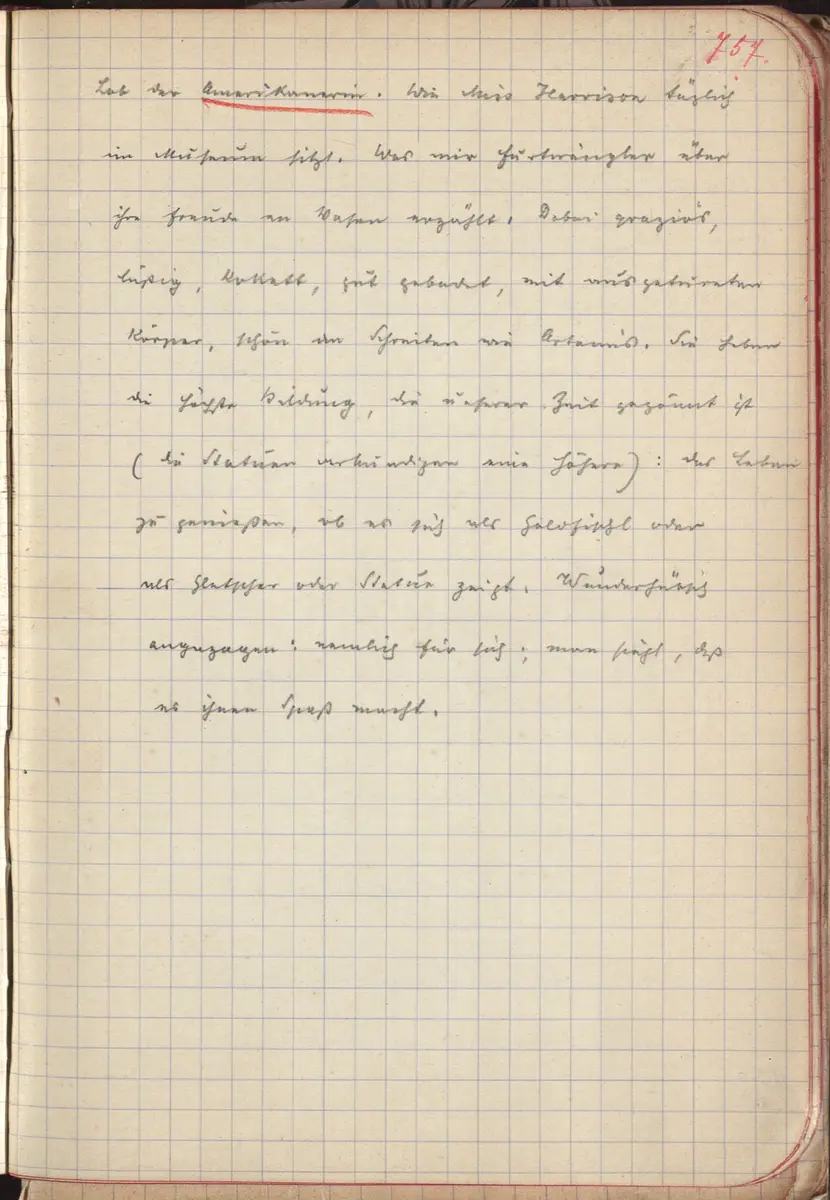 757.
Lob der Amerikanerin. Wie Miss Harrison täglich
im Museum sitzt. Was mir Furtwängler über
ihre Freude an Vasen erzählt. Dabei graziös,
lustig, kokett, gut gebadet, mit ausgeturnten
Körper, schön im Schreiten wie Artemis. Sie haben
die höchste Bildung, die unserer Zeit gegönnt ist
(die Statuen verkündigen eine höhere): das Leben
zu genießen, ob es sich als oder
als Gletscher oder Statue zeigt. Wunderhübsch
angezogen: nemlich für sich; man sieht, daß
es ihnen Spaß macht.